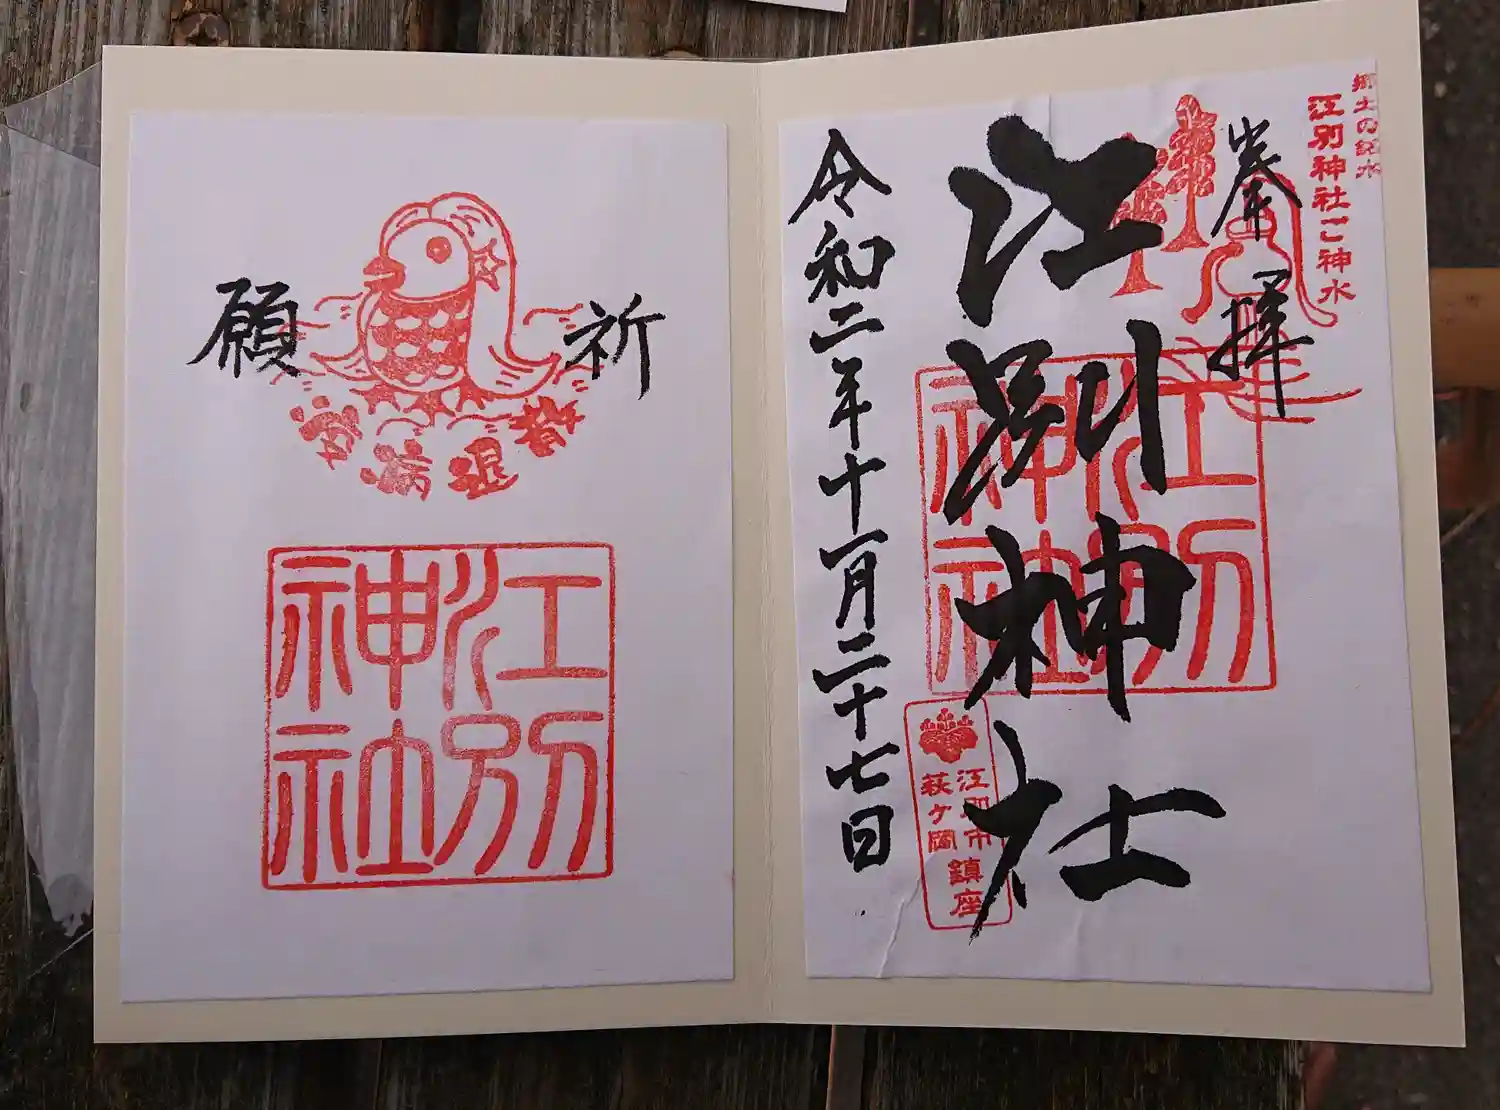 郷土の銘水
江別神社ご神水
奉拝
江別神社
江別神社
江別市
萩ヶ岡
鎮座
令和二年十一月二十七日
祈願
疫病退散
江別神社